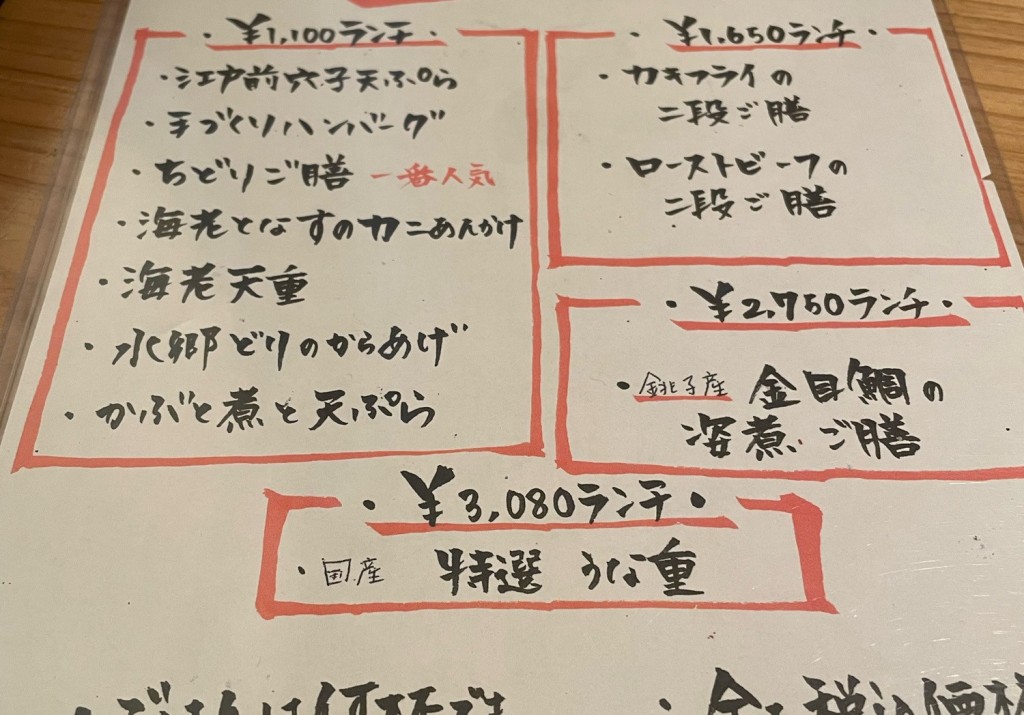 ・¥1,100ランチ・
・江戸前穴子天ぷら
・手づくりハンバーグ
・ちどりご膳 一番人気
・海老となすのカニあんかけ
・海老天重
・水郷どりのからあげ
・かぶと煮と天ぷら
・¥1,650ランチ・
・カキフライの
二段ご膳
・ローストビーフの
二段ご膳
・¥2,750ランチ・
・銚子産 金目鯛の
姿煮ご膳
・¥3,080ランチ・
・国産 特選 うな重
・ごはんは何杯でも
・全て税込価格